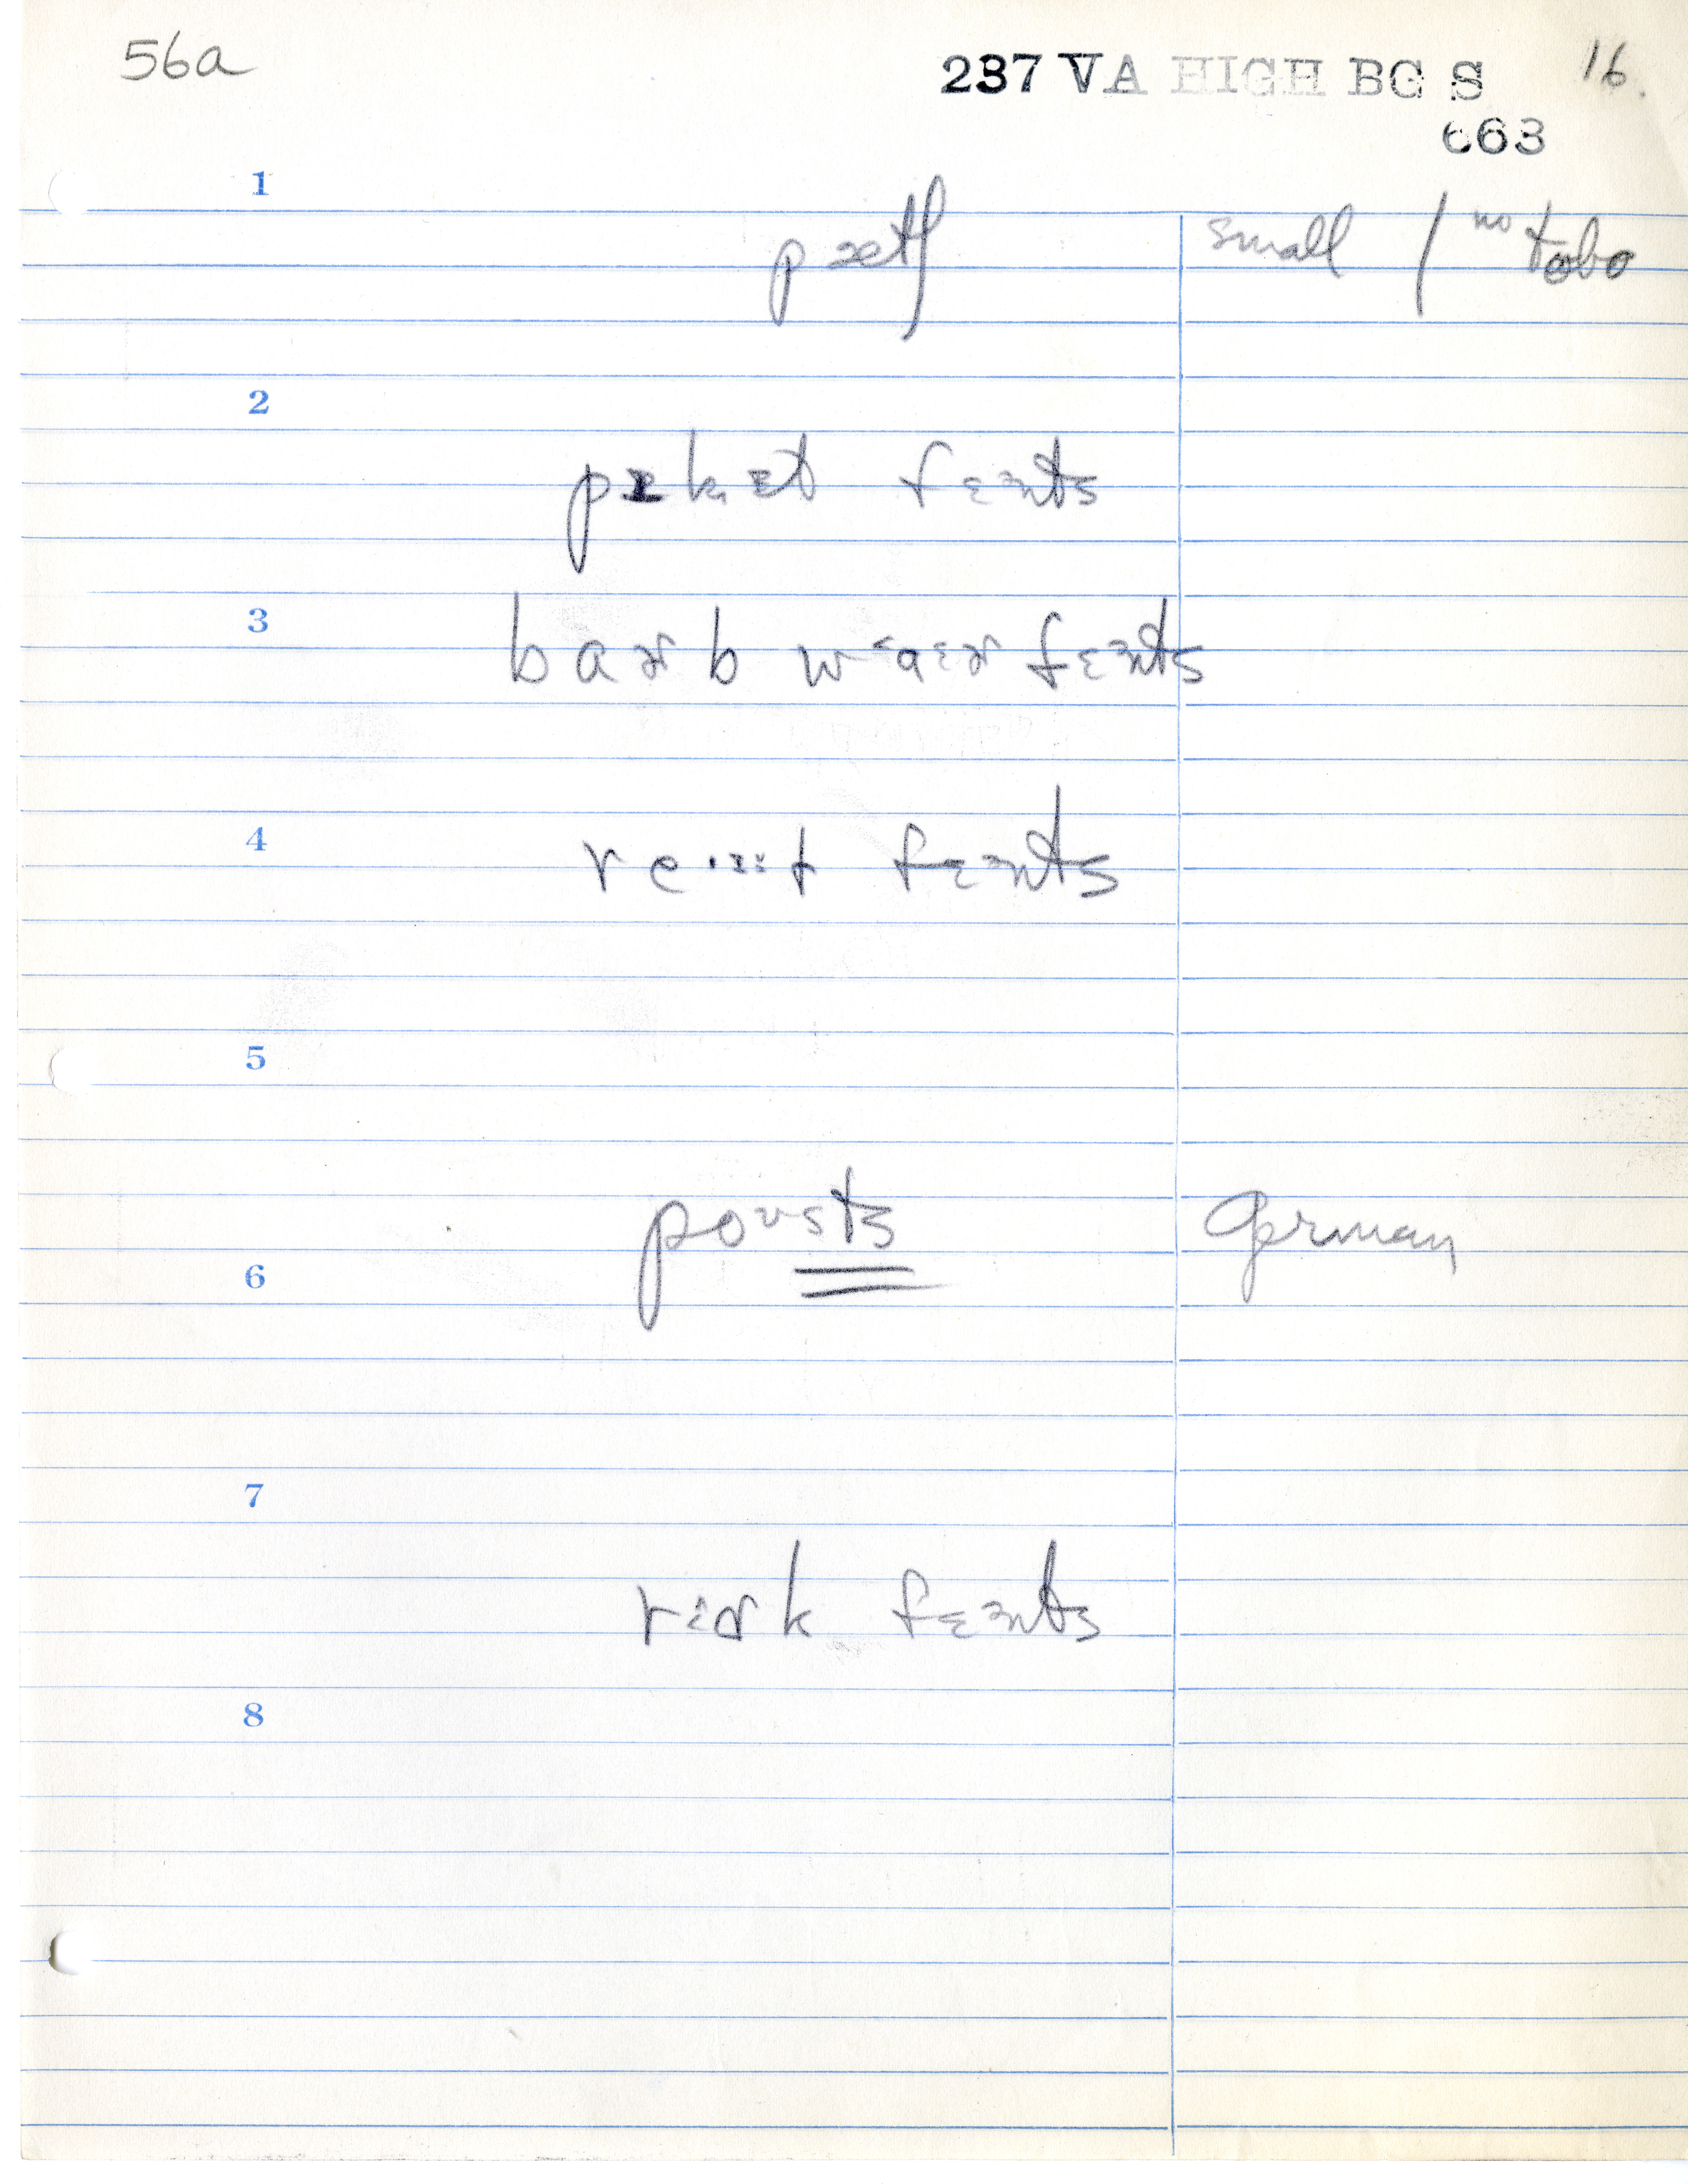 56a
237 VA HIGH BG S 16.
663
1
pætʃ small / no tobo
2
pɪkɪt fɛnts
3
barb waɛr fɛnts
4
fɛnts
5
poʊsts German
6
7
fɛnts
8